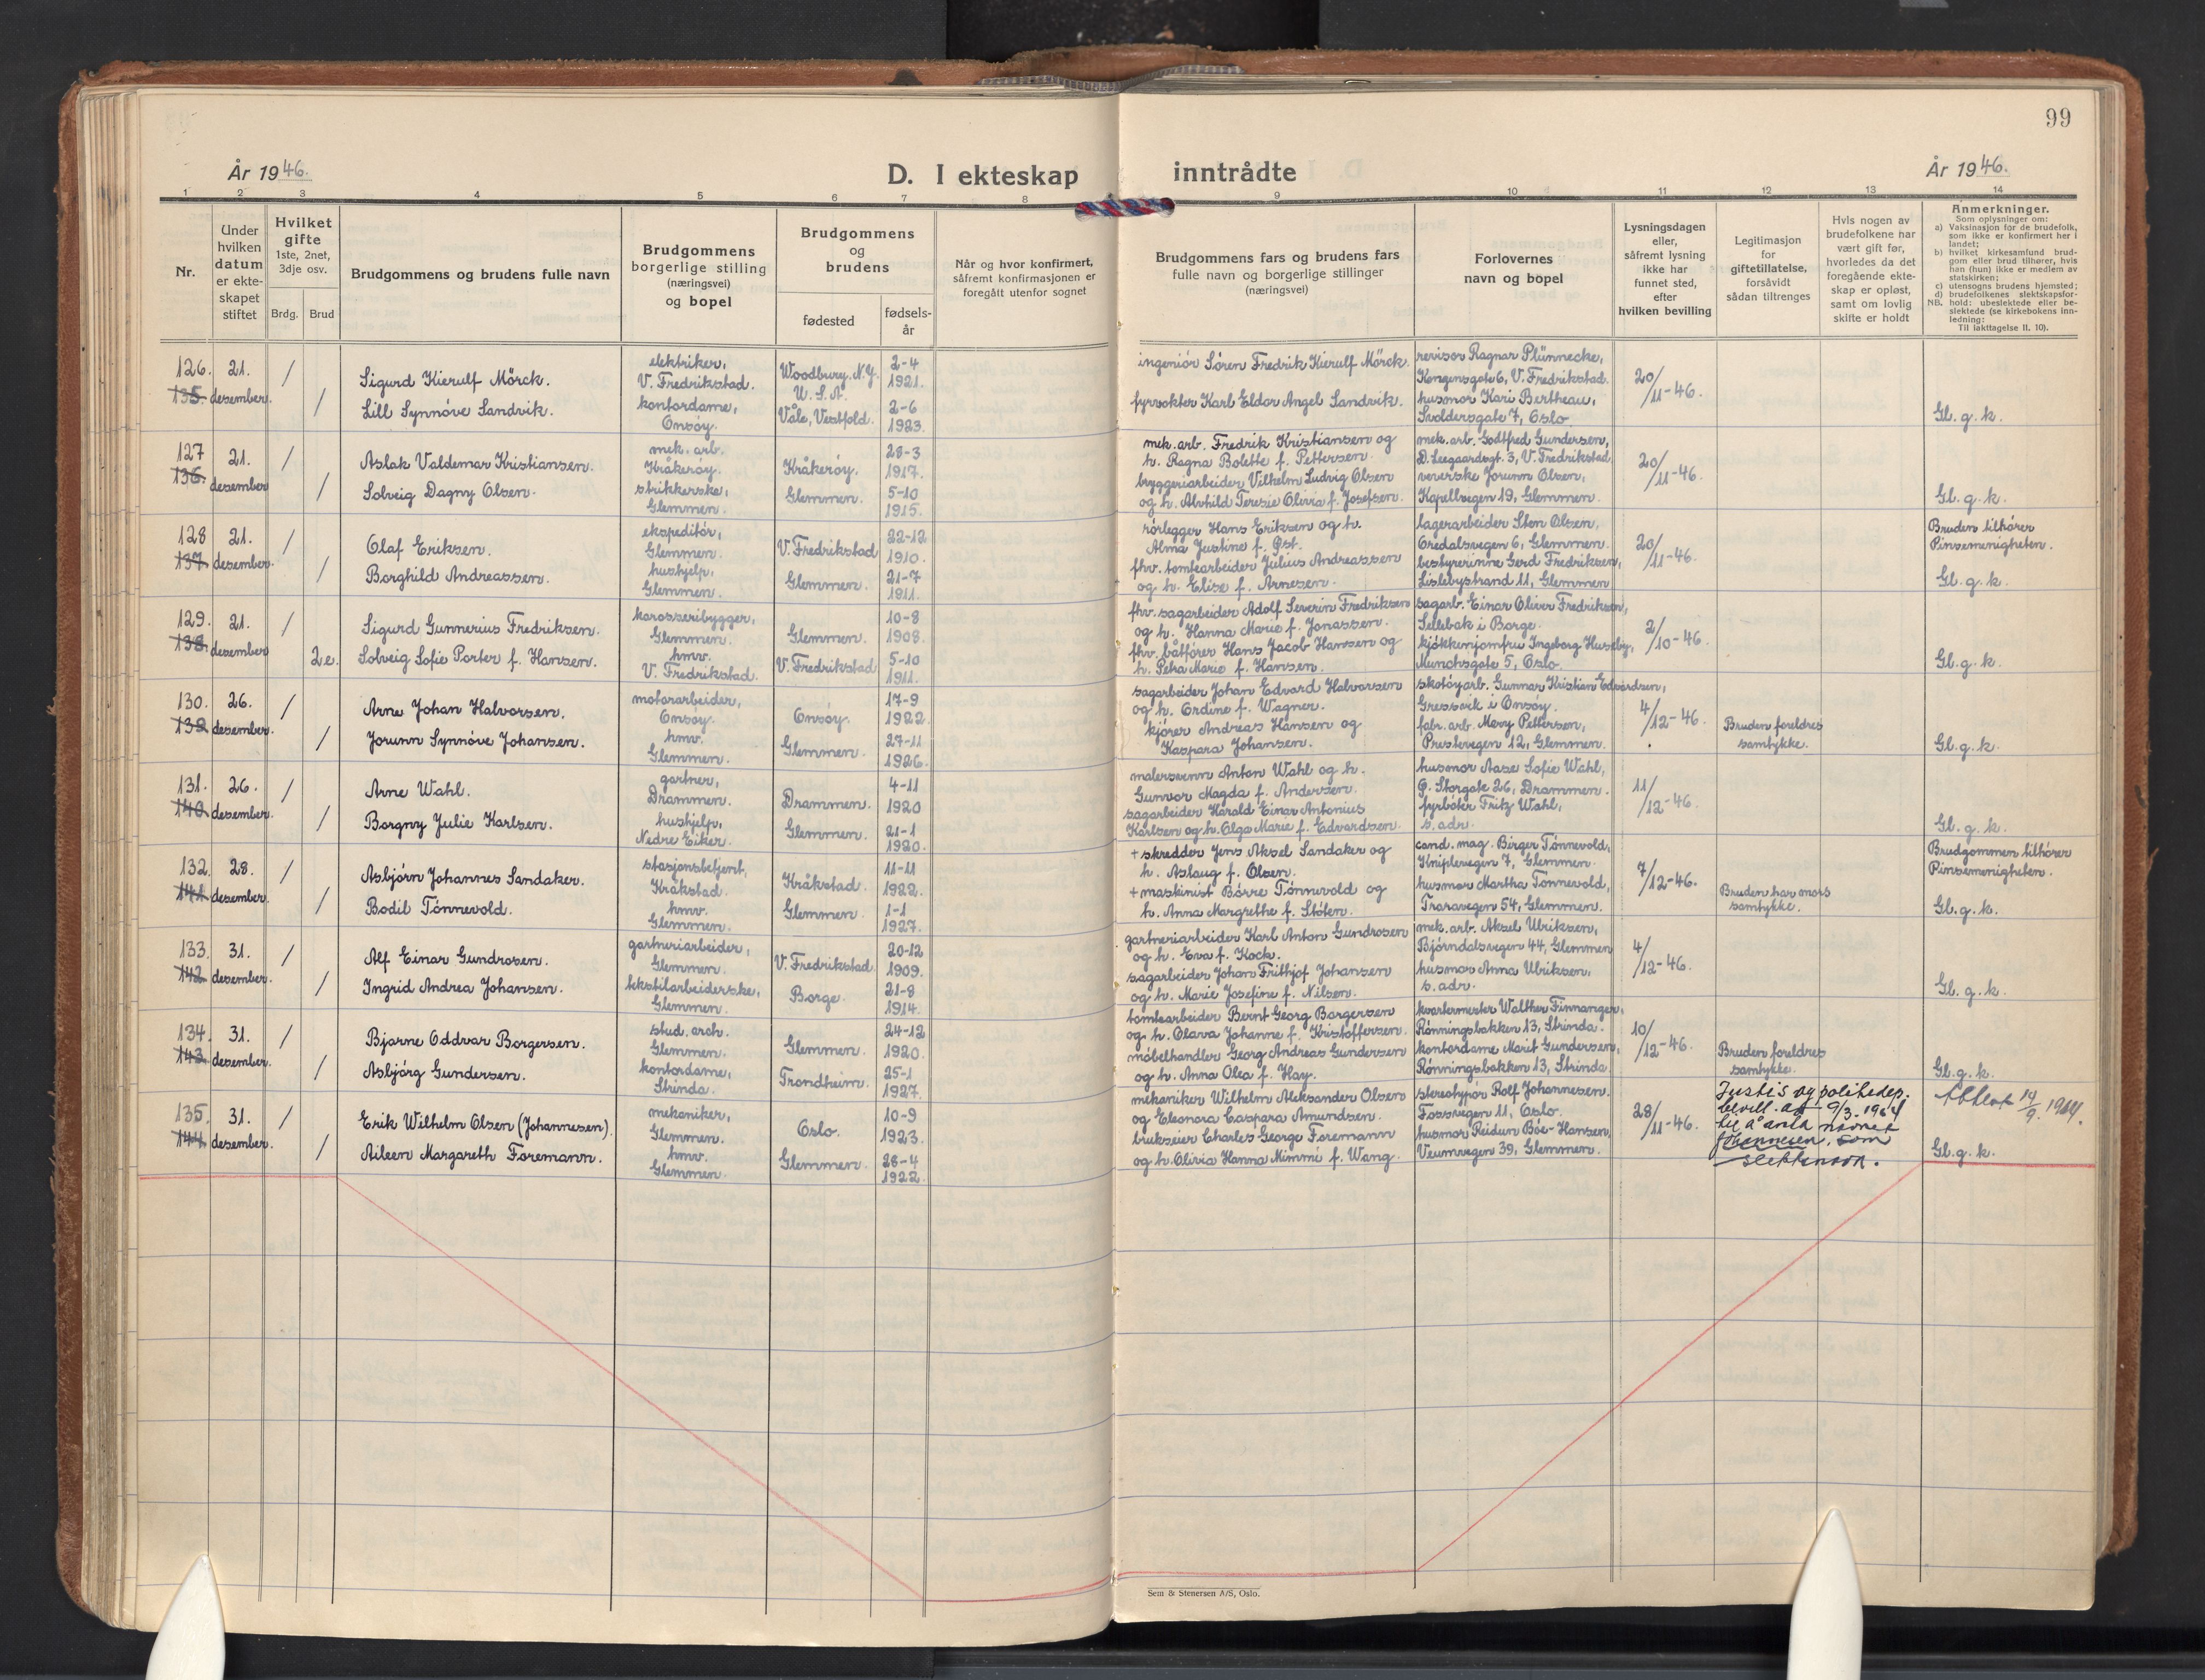 99
År 1946.
D. I ekteskap inntrådte
År 1946.
1 2 3 4 5 6 7 8 9 10 11 12 13 14
Nr.
Under hvilken datum er ekteskapet stiftet
Hvilket gifte 1ste, 2net, 3dje osv.
Brdg. Brud
Brudgommens og brudens fulle navn
Brudgommens borgerlige stilling (næringsvei) og bopel
Brudgommens og brudens
fødested
fødselsår
Når og hvor konfirmert, såfremt konfirmasjonen er foregått utenfor sognet
Brudgommens fars og brudens fars fulle navn og borgerlige stillinger (næringsvei)
Forlovernes navn og bopel
Lysningsdagen eller, såfremt lysning ikke har funnet sted, efter hvilken bevilling
Legitimasjon for giftetillatelse, forsåvidt sådan tiltrenges
Hvis nogen av brudefolkene har vært gift før, hvorledes da det foregående ekteskap er opløst, samt om lovlig skifte er holdt
Anmerkninger.
Som oplysninger om:
a) Vaksinasjon for de brudefolk, som ikke er konfirmert her i landet;
b) hvilket kirkesamfund brudgom eller brud tilhører, hvis han (hun) ikke er medlem av statskirken;
c) utensogns brudens hjemsted;
d) brudefolkenes slektskapsforhold: ubeslektede eller beslektede (se kirkebokens innledning:
NB.
Til iakttagelse II, 10).
126. 135. 21. desember. / /
Sigurd Kierulf Mörck.
Lill Synnöve Sandvik.
elektriker, V. Fredrikstad.
kontordame, Onsöy.
Woodbury. N.Y. U.S.A.
Våle, Vestfold.
2-4 1921.
2-6 1923.
ingeniör Sören Fredrik Kierulf Mörck.
fyrvokter Karl Eldor Angel Sandvik.
revisor Ragnar Plünnecke,
Kongensgate 6, V. Fredrikstad.
husmor Kari Bertheau,
Svoldersgate 7, Oslo.
20/11-46.
Gl. g. k.
127 136. 21. desember / /
Aslak Valdemar Kristiansen.
Solveig Dagny Olsen.
mek. arb. Kråkeröy.
strikkerske, Glemmen.
Kråkeröy.
Glemmen.
28-3 1917.
5-10 1915.
mek. arb. Fredrik Kristiansen og
h. Ragna Bolette f. Pettersen.
bryggeriarbeider Vilhelm Ludvig Olsen
og h. Alvhild Teresie Olivia f. Josefsen.
mek. arb. Godtfred Gundersen,
D. Leegaardsgt. 3, V. Fredrikstad
veverske Jorunn Olsen,
Kapellvegen 19, Glemmen.
20/11-46.
Gl. g. k.
128 137. 21. desember. / /
Olaf Eriksen.
Borghild Andreassen.
ekspeditör, Glemmen.
hushjelp, Glemmen.
V. Fredrikstad
Glemmen.
22-12 1910.
21-7 1911.
rörlegger Hans Eriksen og h.
Alma Justine f. Pst.
fhv. tomtearbeider Julius Andreassen
og h. Elise f. Arnesen.
lagerarbeider Sten Olsen,
Oredalsvegen 6, Glemmen.
bestyrerinne Gerd Fredriksen,
Lislebystrand 11, Glemmen
20/11-46.
Bruden tilhörer Pinsemenigheten.
Gl. g. k.
129. 138. 21. desember / 2e.
Sigurd Gunnerius Fredriksen.
Solveig Sofie Porter f. Hansen.
karosseribygger, Glemmen.
hmv. V. Fredrikstad.
Glemmen.
V. Fredrikstad
10-8 1908.
5-10 1911.
fhv. sagarbeider Adolf Severin Fredriksen
og h. Hanna Marie f. Jonassen.
fhv. båtförer Hans Jacob Hanssen og
h. Petra Marie f. Hansen.
sagarb. Einar Oliver Fredriksen,
Sellebak i Borge.
kjökkenjomfru Ingeborg Huseby,
Munchsgate 5, Oslo.
2/10-46.
Gl. g. k.
130. 139 26. desember. / /
Arne Johan Halvorsen.
Jorunn Synnöve Johansen.
motorarbeider, Onsöy.
hmv. Glemmen.
Onsöy.
Glemmen.
17-9 1922.
27-11 1926.
sagarbeider Johan Edvard Halvorsen
og h. Ordine f. Wagner.
kjörer Andreas Hansen og
Kaspara Johansen.
skotöyarb. Gunnar Kristian Edvardsen,
Gressvik i Onsöy.
fabr. arb. Mary Pettersen,
Prestevegen 12, Glemmen.
4/12-46.
Bruden foreldres samtykke.
Gl. g. k.
131. 140 26. desember. / /
Arne Wahl.
Borgny Julie Karlsen.
gartner, Drammen.
hushjelp, Nedre Eiker.
Drammen.
Glemmen.
4-11 1920
21-1 1920.
malersvenn Anton Wahl og h.
Gunvor Magda f. Andersen.
sagarbeider Harald Einar Antonius
Karlsen og h. Olga Marie f. Edvardsen.
husmor Aase Sofie Wahl,
Ö. Storgate 26, Drammen.
fyrböter Fritz Wahl,
s. adr.
11/12-46.
Gl. g. k.
132. 141 28. desember. / /
Asbjörn Johannes Sandaker.
Bodil Tönnevold.
stasjonsbetjent, Kråkstad.
hmv. Glemmen.
Kråkstad.
Glemmen.
11-11 1922.
1-1 1927.
+ skredder Jens Aksel Sandaker og
h. Aslaug f. Olsen.
+ maskinist Börre Tönnevold og
h. Anna Margrethe f. Stöten.
cand. mag. Birger Tönnevold,
Kniplevegen 7, Glemmen.
husmor Martha Tönnevold,
Traravegen 54, Glemmen.
7/12-46.
Bruden har mors samtykke.
Brudgommen tilhörer Pinsemenigheten.
Gl. g. k.
133. 142 31. desember. / /
Alf Einar Gundrosen.
Ingrid Andrea Johansen.
gartneriarbeider, Glemmen.
tekstilarbeiderske, Glemmen.
V. Fredrikstad.
Borge.
20-12 1909.
21-8 1914.
gartneriarbeider Karl Anton Gundrosen
og h. Eva f. Kock.
sagarbeider Johan Frithjof Johansen
og h. Marie Josefine f. Nilsen.
mek. arb. Aksel Ulriksen,
Björndalsvegen 44, Glemmen
husmor Anna Ulriksen.
s. adr.
4/12-46.
Gl. g. k.
134. 143. 31. desember. / /
Bjarne Oddvar Borgersen.
Asbjörg Gundersen.
stud. arch. Glemmen.
kontordame, Strinda.
Glemmen.
Trondheim.
24-12 1920.
25-1 1927.
tomtearbeider Bernt Georg Borgersen
og h. Olava Johanne f. Kristoffersen.
möbelhandler Georg Andreas Gundersen
og h. Anna Olea f. Hay.
kvartermester Walther Finnanger,
Rönningsbakken 13, Strinda.
kontordame Marit Gundersen,
Rönningsbakken 13, Strinda.
10/12-46.
Bruden foreldres samtykke.
Gl. g. k.
135. 144. 31. desember. / /
Erik Wilhelm Olsen (Johannesen).
Aileen Margareth Foremann.
mekaniker, Glemmen.
hmv. Glemmen.
Oslo.
Glemmen.
10-9 1923.
28-4 1922.
mekaniker Wilhelm Aleksander Olsen
og Eleonora Caspara Amundsen.
brukseier Charles George Foremann
og h. Olivia Hanna Mimmi f. Wang.
stereotypör Rolf Johannesen.
Fossvegen 11, Oslo.
husmor Reidun Böe-Hansen,
Veumvegen 39, Glemmen.
28/11-46.
Justis og politidep.
bevill. av 9/3-1964
til å anta navnet
Johannesen, som
slektsnavn.
Gl. g. k.
Sem & Stenersen A/S, Oslo.